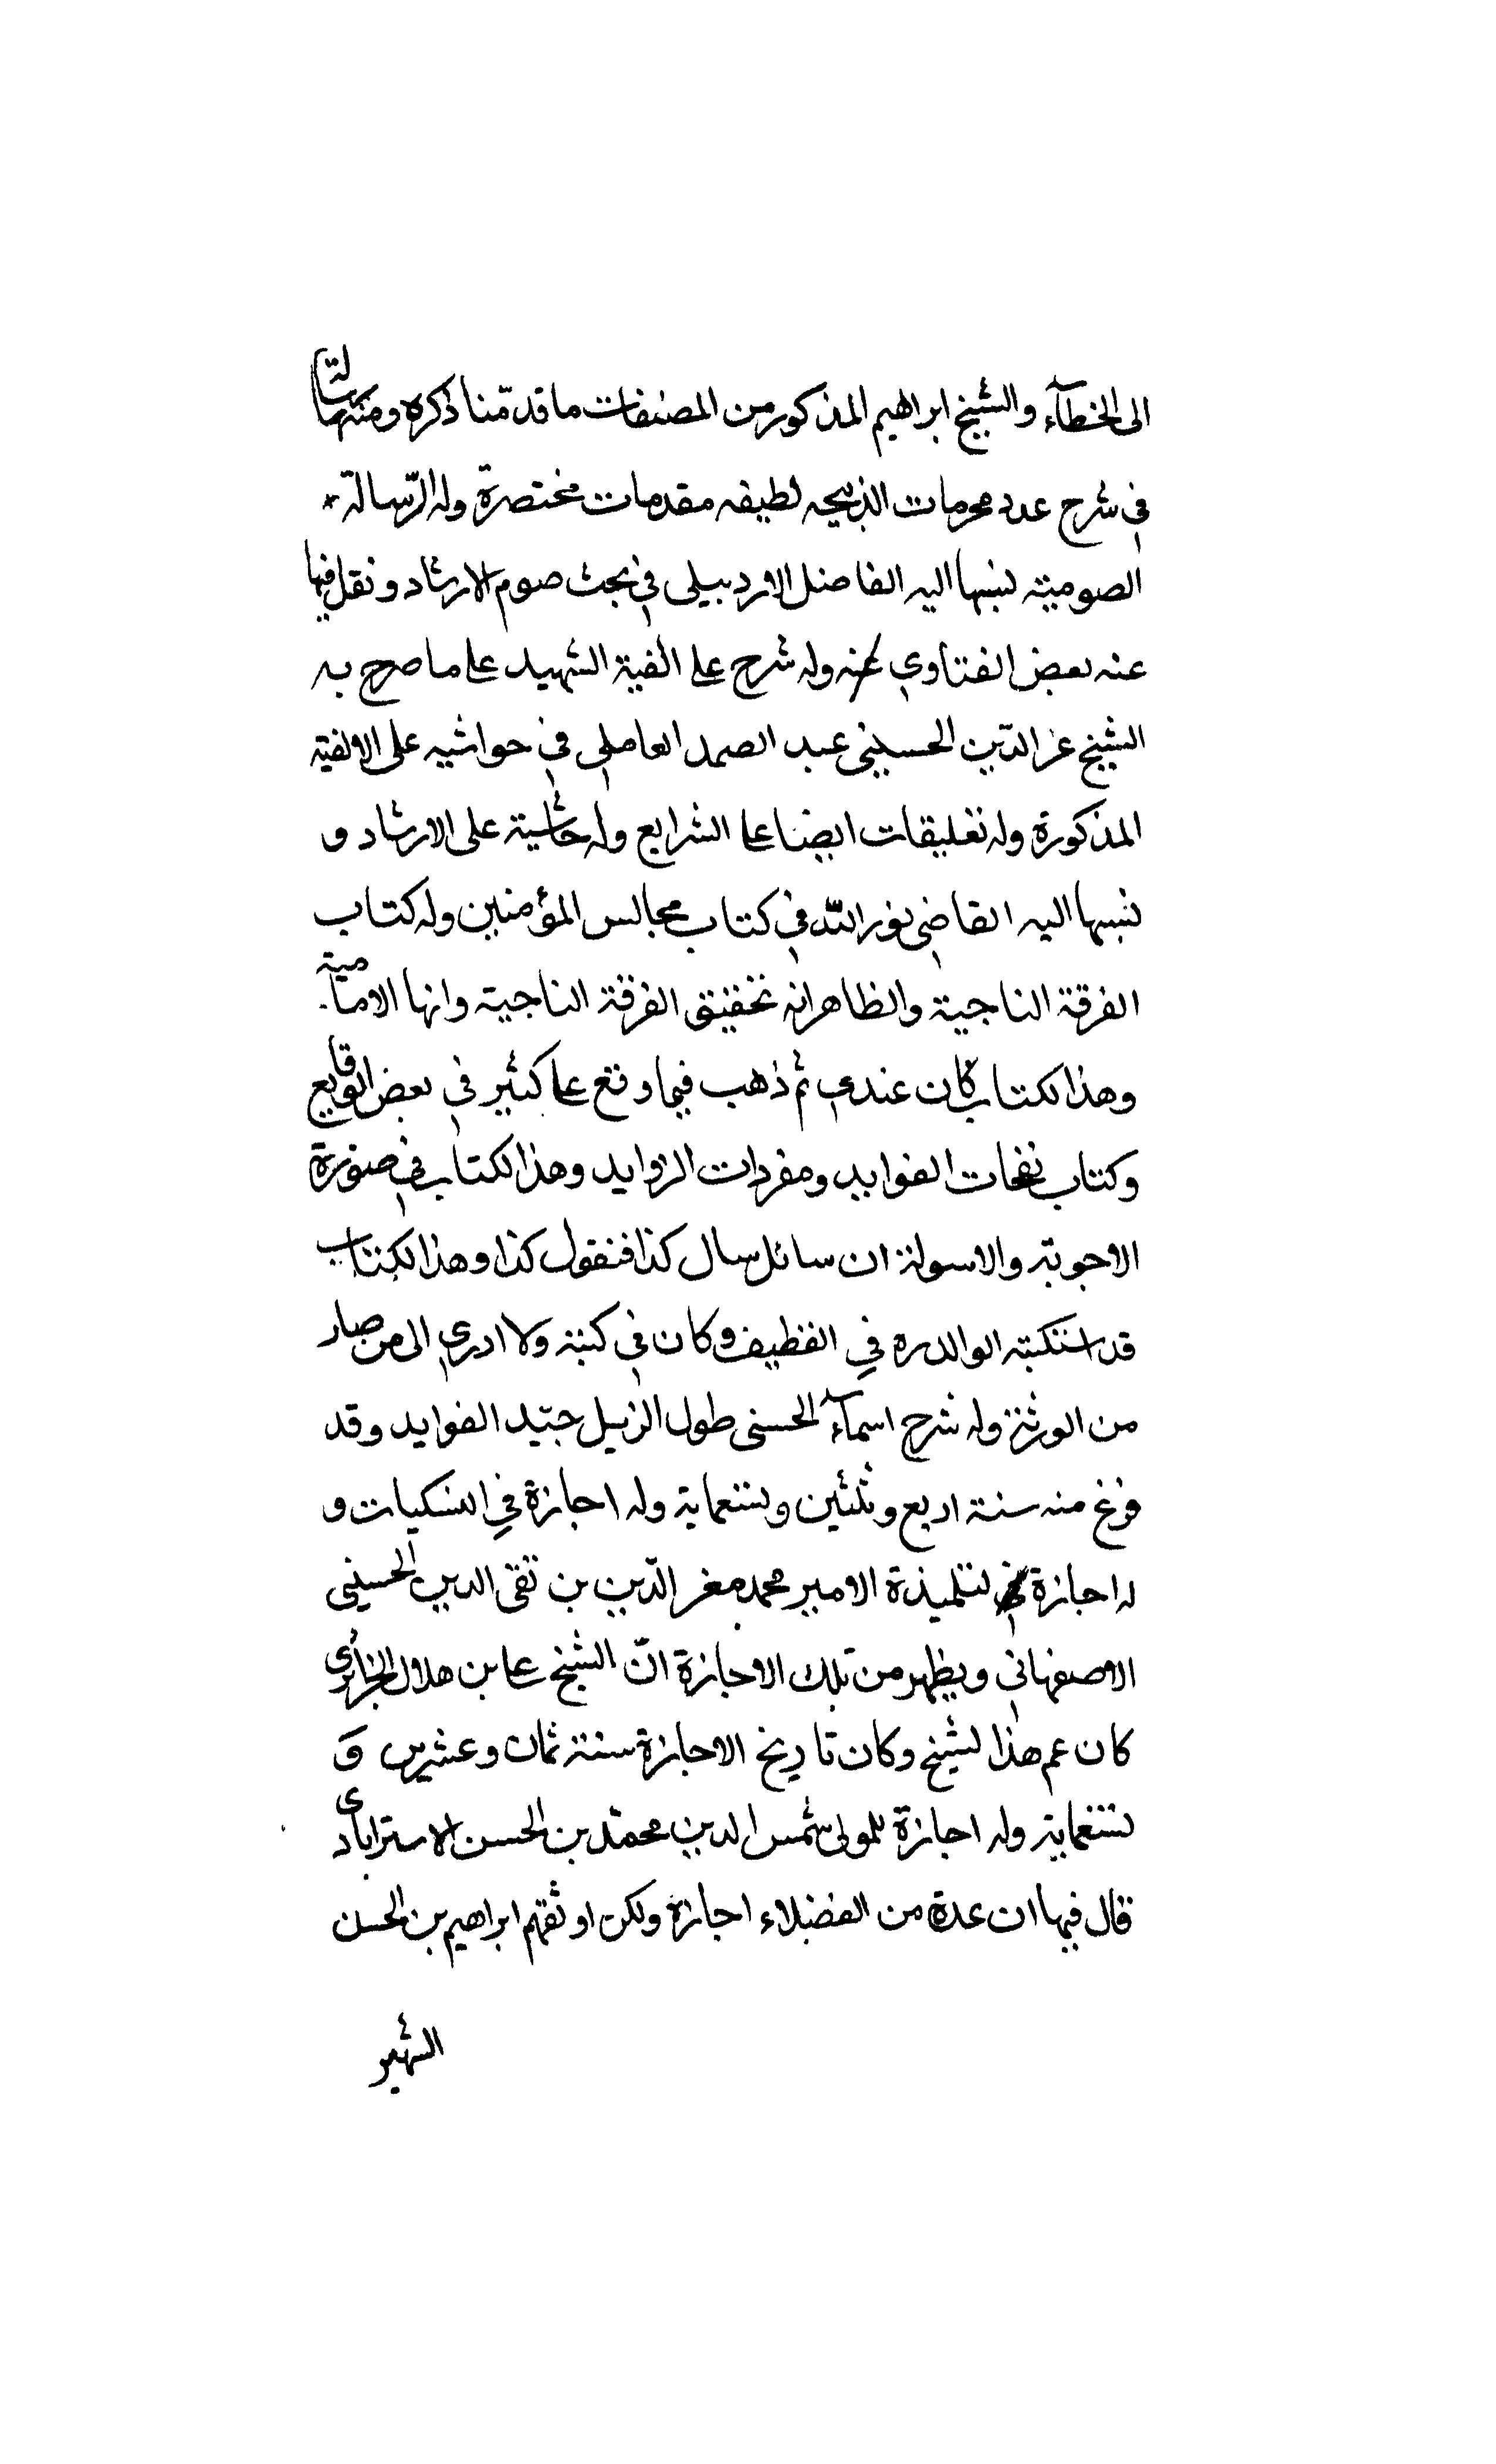 الى الخطآء والشيخ ابراهيم المذكور من المصنفات ما قدمّنا ذكره ومنها رسالة
فى شرح عدد محرمات الذبيحه لطيفه مقدمات مختصرة وله الرّسالة
الصومية نسبها اليه الفاضل الاردبيلى فى بحث صوم الارشاد ونقل فيها
عنه بعض الفتاوى وله شرح على الفية الشهيد على ما صرح به
الشيخ عز الدّين الحسين بن عبد الصمد العاملى فى حواشيه على الالفية
المذكورة وله تعليقات ايضا على الشرايع وله حاشية على الارشاد و
نسبها اليه القاضى نور اللّه فى كتاب مجالس المؤمنين وله كتاب
الفرقة الناجية والظاهر انه تحقيق الفرقة الناجية وانها الامامية
وهذا لكتاب كان عندى ثم ذهب فيما وقع على كثير فى بعض الوقايع
وكتاب نفحات الفوايد ومفردات الزوايد وهذا لكتاب فى صورة
الاجوبة والاسولة ان سائل سال كذا فنقول كذا وهذا لكتاب
قد استكتبه الوالد ره فى القطيف وكان فى كتبه ولا ادرى الى من صار
من الورثة وله شرح اسمآء الحسنى طول الذيل جيّد الفوايد وقد
فرغ منه سنة اربع وثلثين وتسعماية وله اجازة فى الشكيات و
له اجازة لتلميذة الامير محمد معز الدّين بن تقى الدين الحسينى
الاصفهانى ويظهر من تلك الاجازة انّ الشيخ على بن هلال الجزائرى
كان عم هذا لشيخ وكان تاريخ الاجازة سنة ثمان وعشرين و
تسعماية وله اجازة للمولى شمس الدين محمّد بن الحسن الاسترابادى
قال فيها ان عدة من الفضلاء اجازة ولكن اوثقهم ابراهيم بن الحسن
الشهير